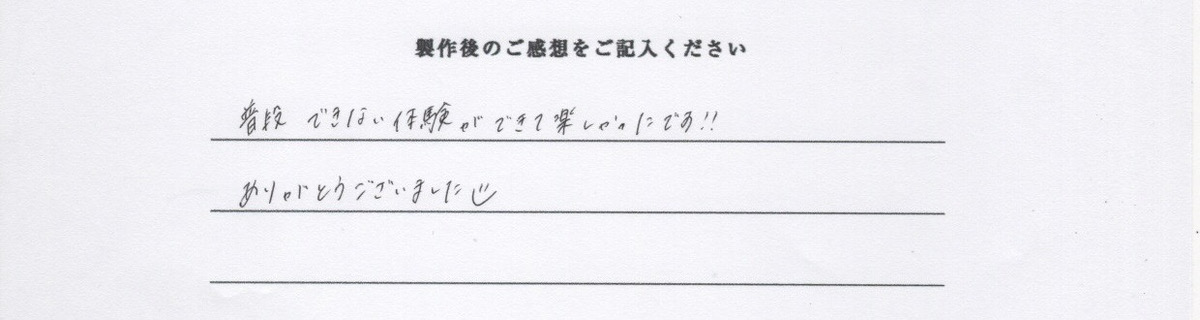 製作後のご感想をご記入ください
普段できない体験ができて楽しかったです!!
ありがとうございました